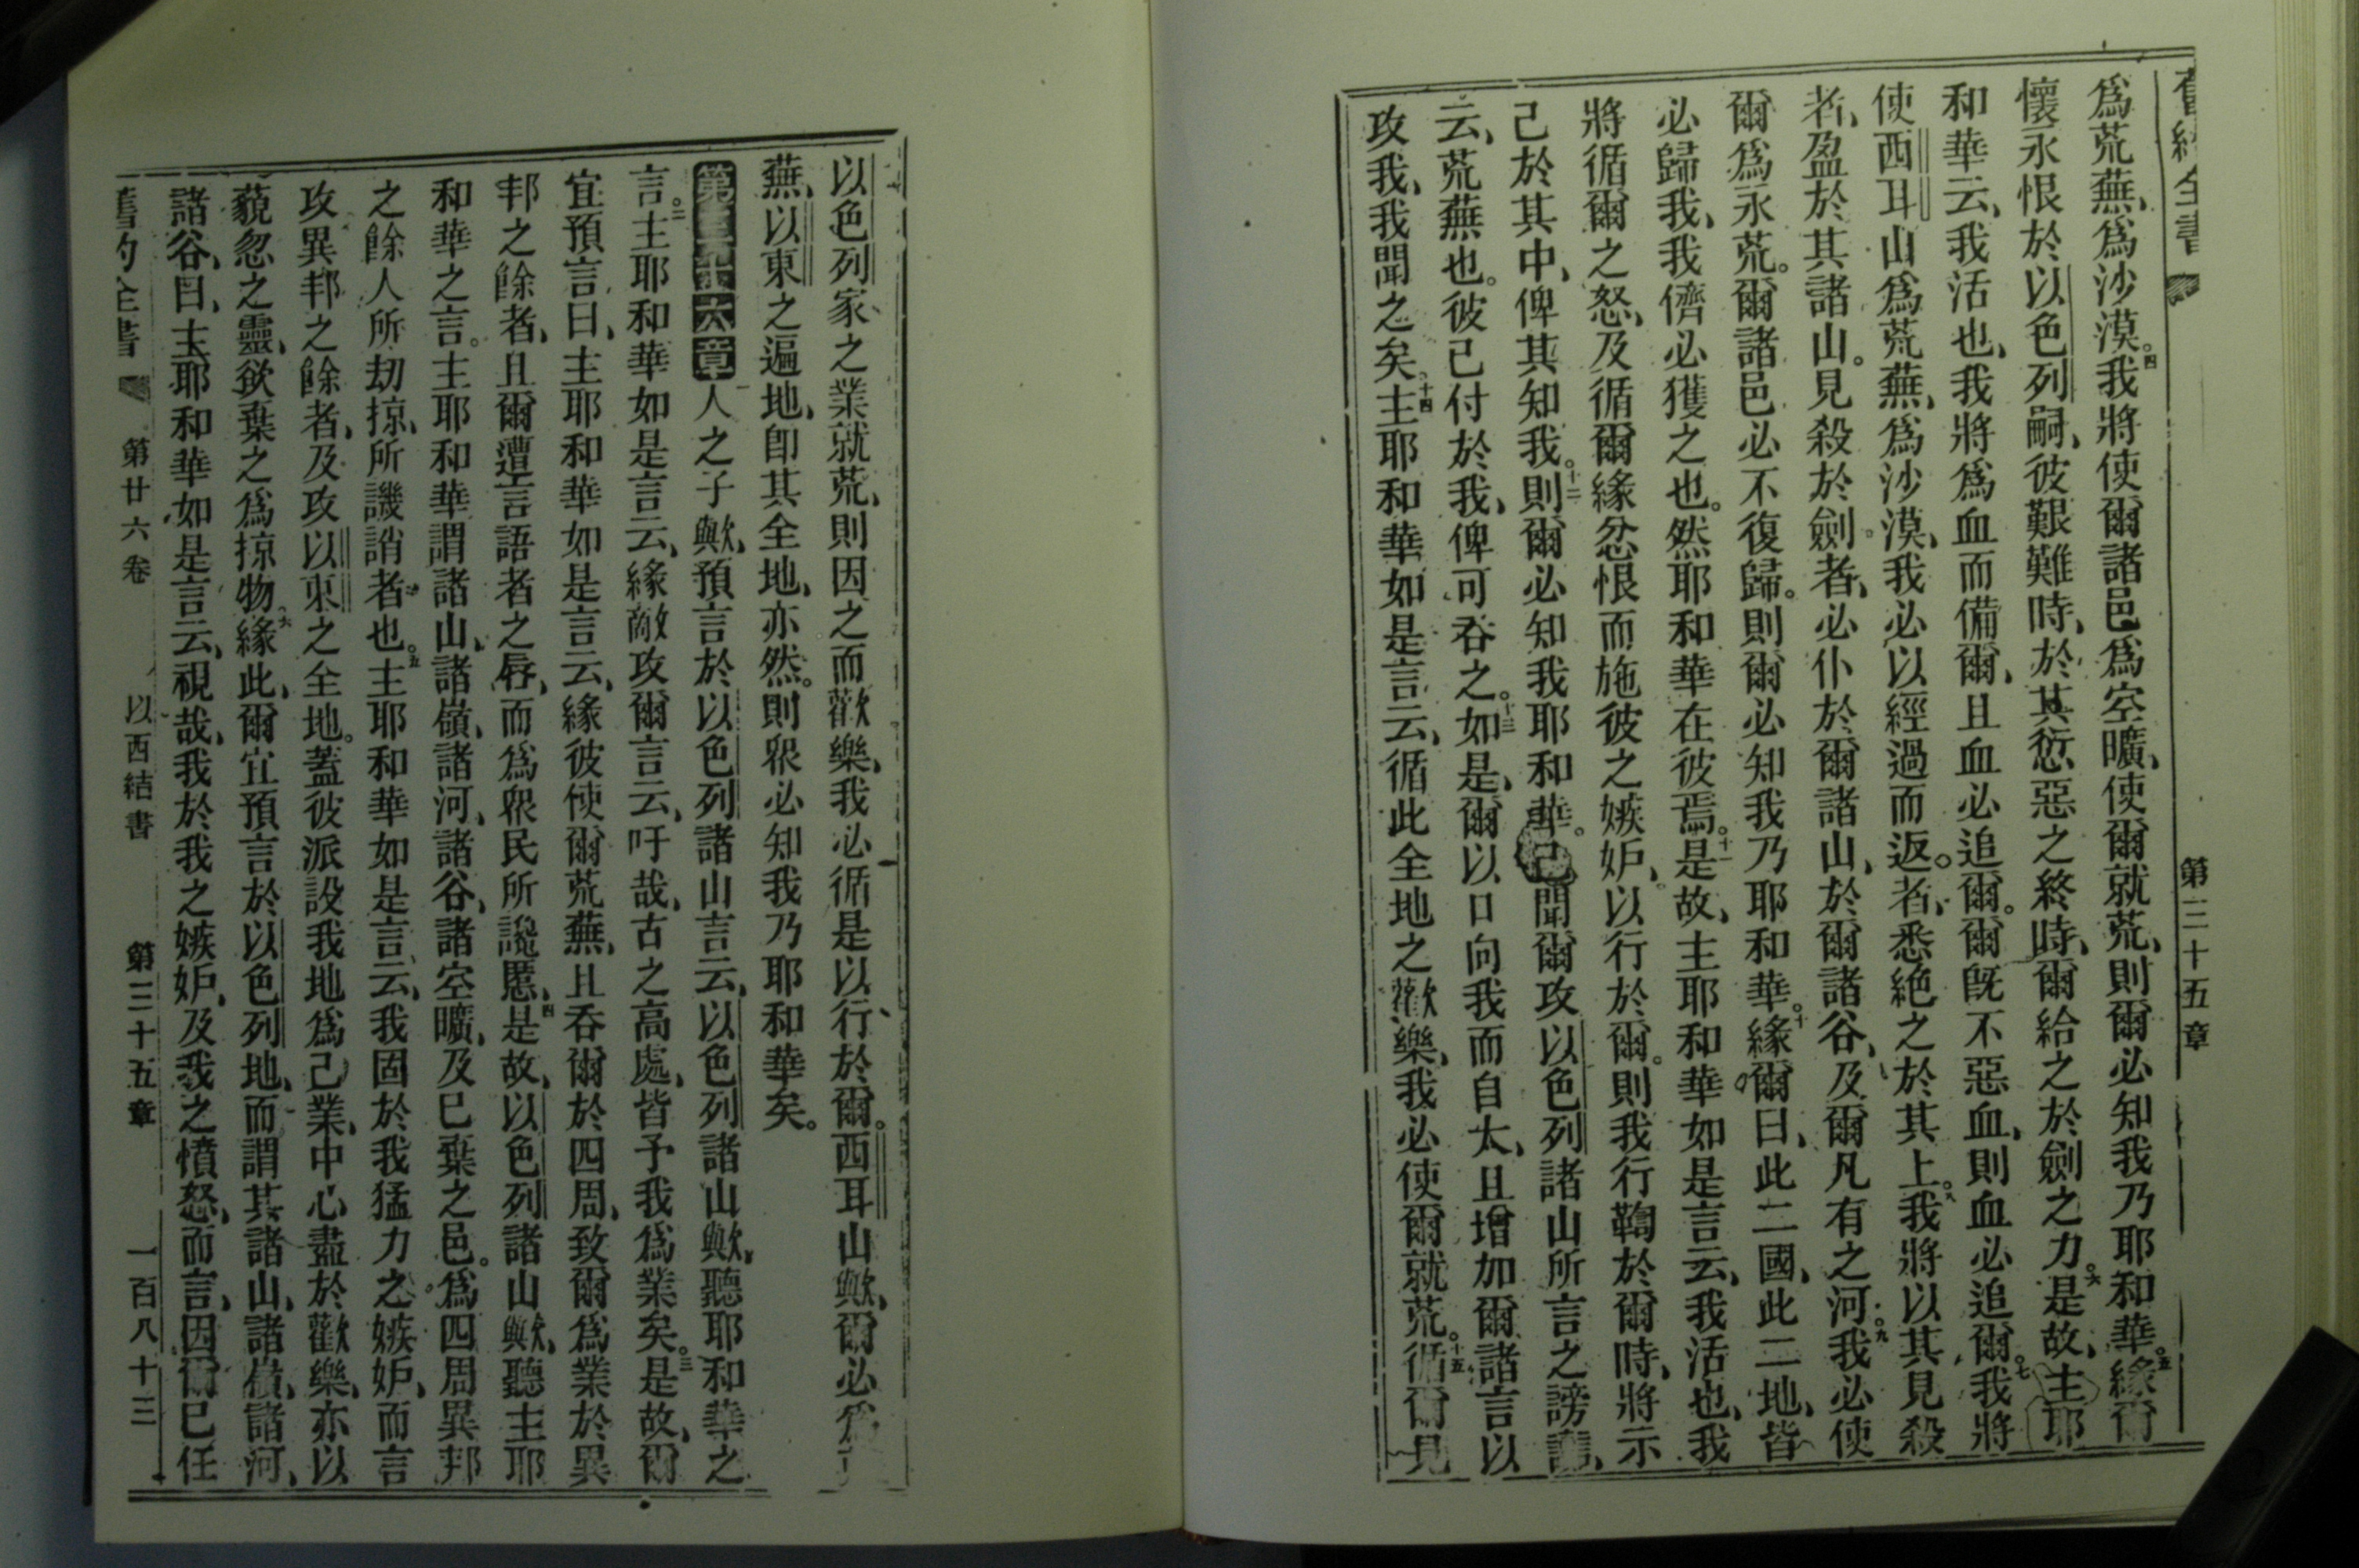 舊約全書
第三十五章
爲荒蕪、爲沙漠。四我將使爾諸邑爲空曠、使爾就荒、則爾必知我乃耶和華。五緣爾
懷永恨於以色列嗣、彼艱難時、於其愆惡之終時、爾給之於劍之力。六是故、主耶
和華云、我活也、我將爲血而備爾、且血必追爾。爾旣不惡血、則血必追爾。七我將
使西耳山爲荒蕪、爲沙漠、我必以經過而返者、悉絕之於其上。八我將以其見殺
者、盈於其諸山。見殺於劍者、必仆於爾諸山、於爾諸谷、及爾凡有之河。九我必使
爾爲永荒。爾諸邑必不復歸。則爾必知我乃耶和華。十緣爾曰、此二國、此二地、皆
必歸我、我儕必獲之也。然耶和華在彼焉。十一是故、主耶和華如是言云、我活也、我
將循爾之怒、及循爾緣忿恨而施彼之嫉妒、以行於爾。則我行鞫於爾時、將示
己於其中、俾其知我。十二則爾必知我耶和華。已聞爾攻以色列諸山所言之謗讟、
云、荒蕪也。彼已付於我、俾可吞之。十三如是、爾以口向我而自大、且增加爾諸言以
攻我、我聞之矣。十四主耶和華如是言云、循此全地之歡樂、我必使爾就荒。十五循爾見
以色列家之業就荒、則因之而歡樂、我必循是以行於爾。西耳山歟、爾必爲荒
蕪、以東之遍地、卽其全地、亦然。則眾必知我乃耶和華矣。
第三十六章一人之子歟、預言於以色列諸山言云、以色列諸山歟、聽耶和華之
言。二主耶和華如是言云、緣敵攻爾言云、吁哉、古之高處、皆予我爲業矣。三是故、爾
宜預言曰、主耶和華如是言云、緣彼使爾荒蕪、且吞爾於四周、致爾爲業於異
邦之餘者、且爾遭言語者之唇、而爲眾民所讒慝、四是故、以色列諸山歟、聽主耶
和華之言。主耶和華謂諸山、諸嶺、諸河、諸谷、諸空曠、及已棄之邑。爲四周異邦
之餘人所劫掠、所譏誚者也。五主耶和華如是言云、我固於我猛力之嫉妒、而言
攻異邦之餘者、及攻以東之全地。蓋彼派設我地爲己業、中心盡於歡樂、亦以
藐忽之靈、欲棄之爲掠物。六緣此、爾宜預言於以色列地、而謂其諸山、諸嶺、諸河、
諸谷、曰、主耶和華如是言云、視哉、我於我之嫉妒、及我之憤怒、而言、因爾已任
舊約全書 第廿六卷 以西結書 第三十五章 一百八十三